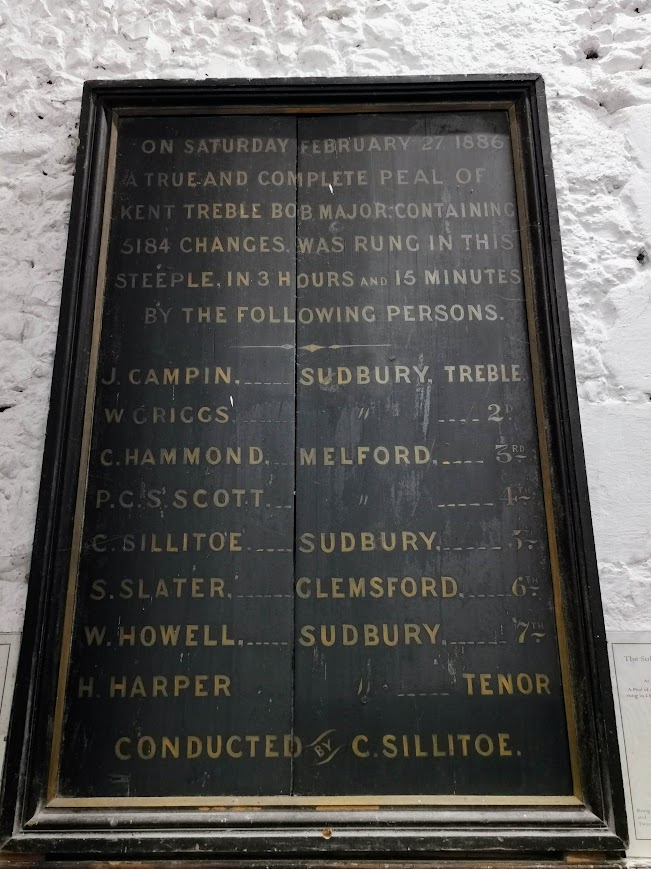 ON SATURDAY FEBRUARY 27 1886
A TRUE AND COMPLETE PEAL OF
KENT TREBLE BOB MAJOR, CONTAINING
5184 CHANGES, WAS RUNG IN THIS
STEEPLE, IN 3 HOURS AND 15 MINUTES
BY THE FOLLOWING PERSONS.
J. CAMPIN, SUDBURY, TREBLE
W. GRIGGS. " 2D
C. HAMMOND, MELFORD, 3RD
P.C.S. SCOTT " 4TH
C. SILLITOE SUDBURY, 5TH
S. SLATER, GLEMSFORD, 6TH
W. HOWELL, SUDBURY, 7TH
H. HARPER " TENOR
CONDUCTED BY C. SILLITOE.